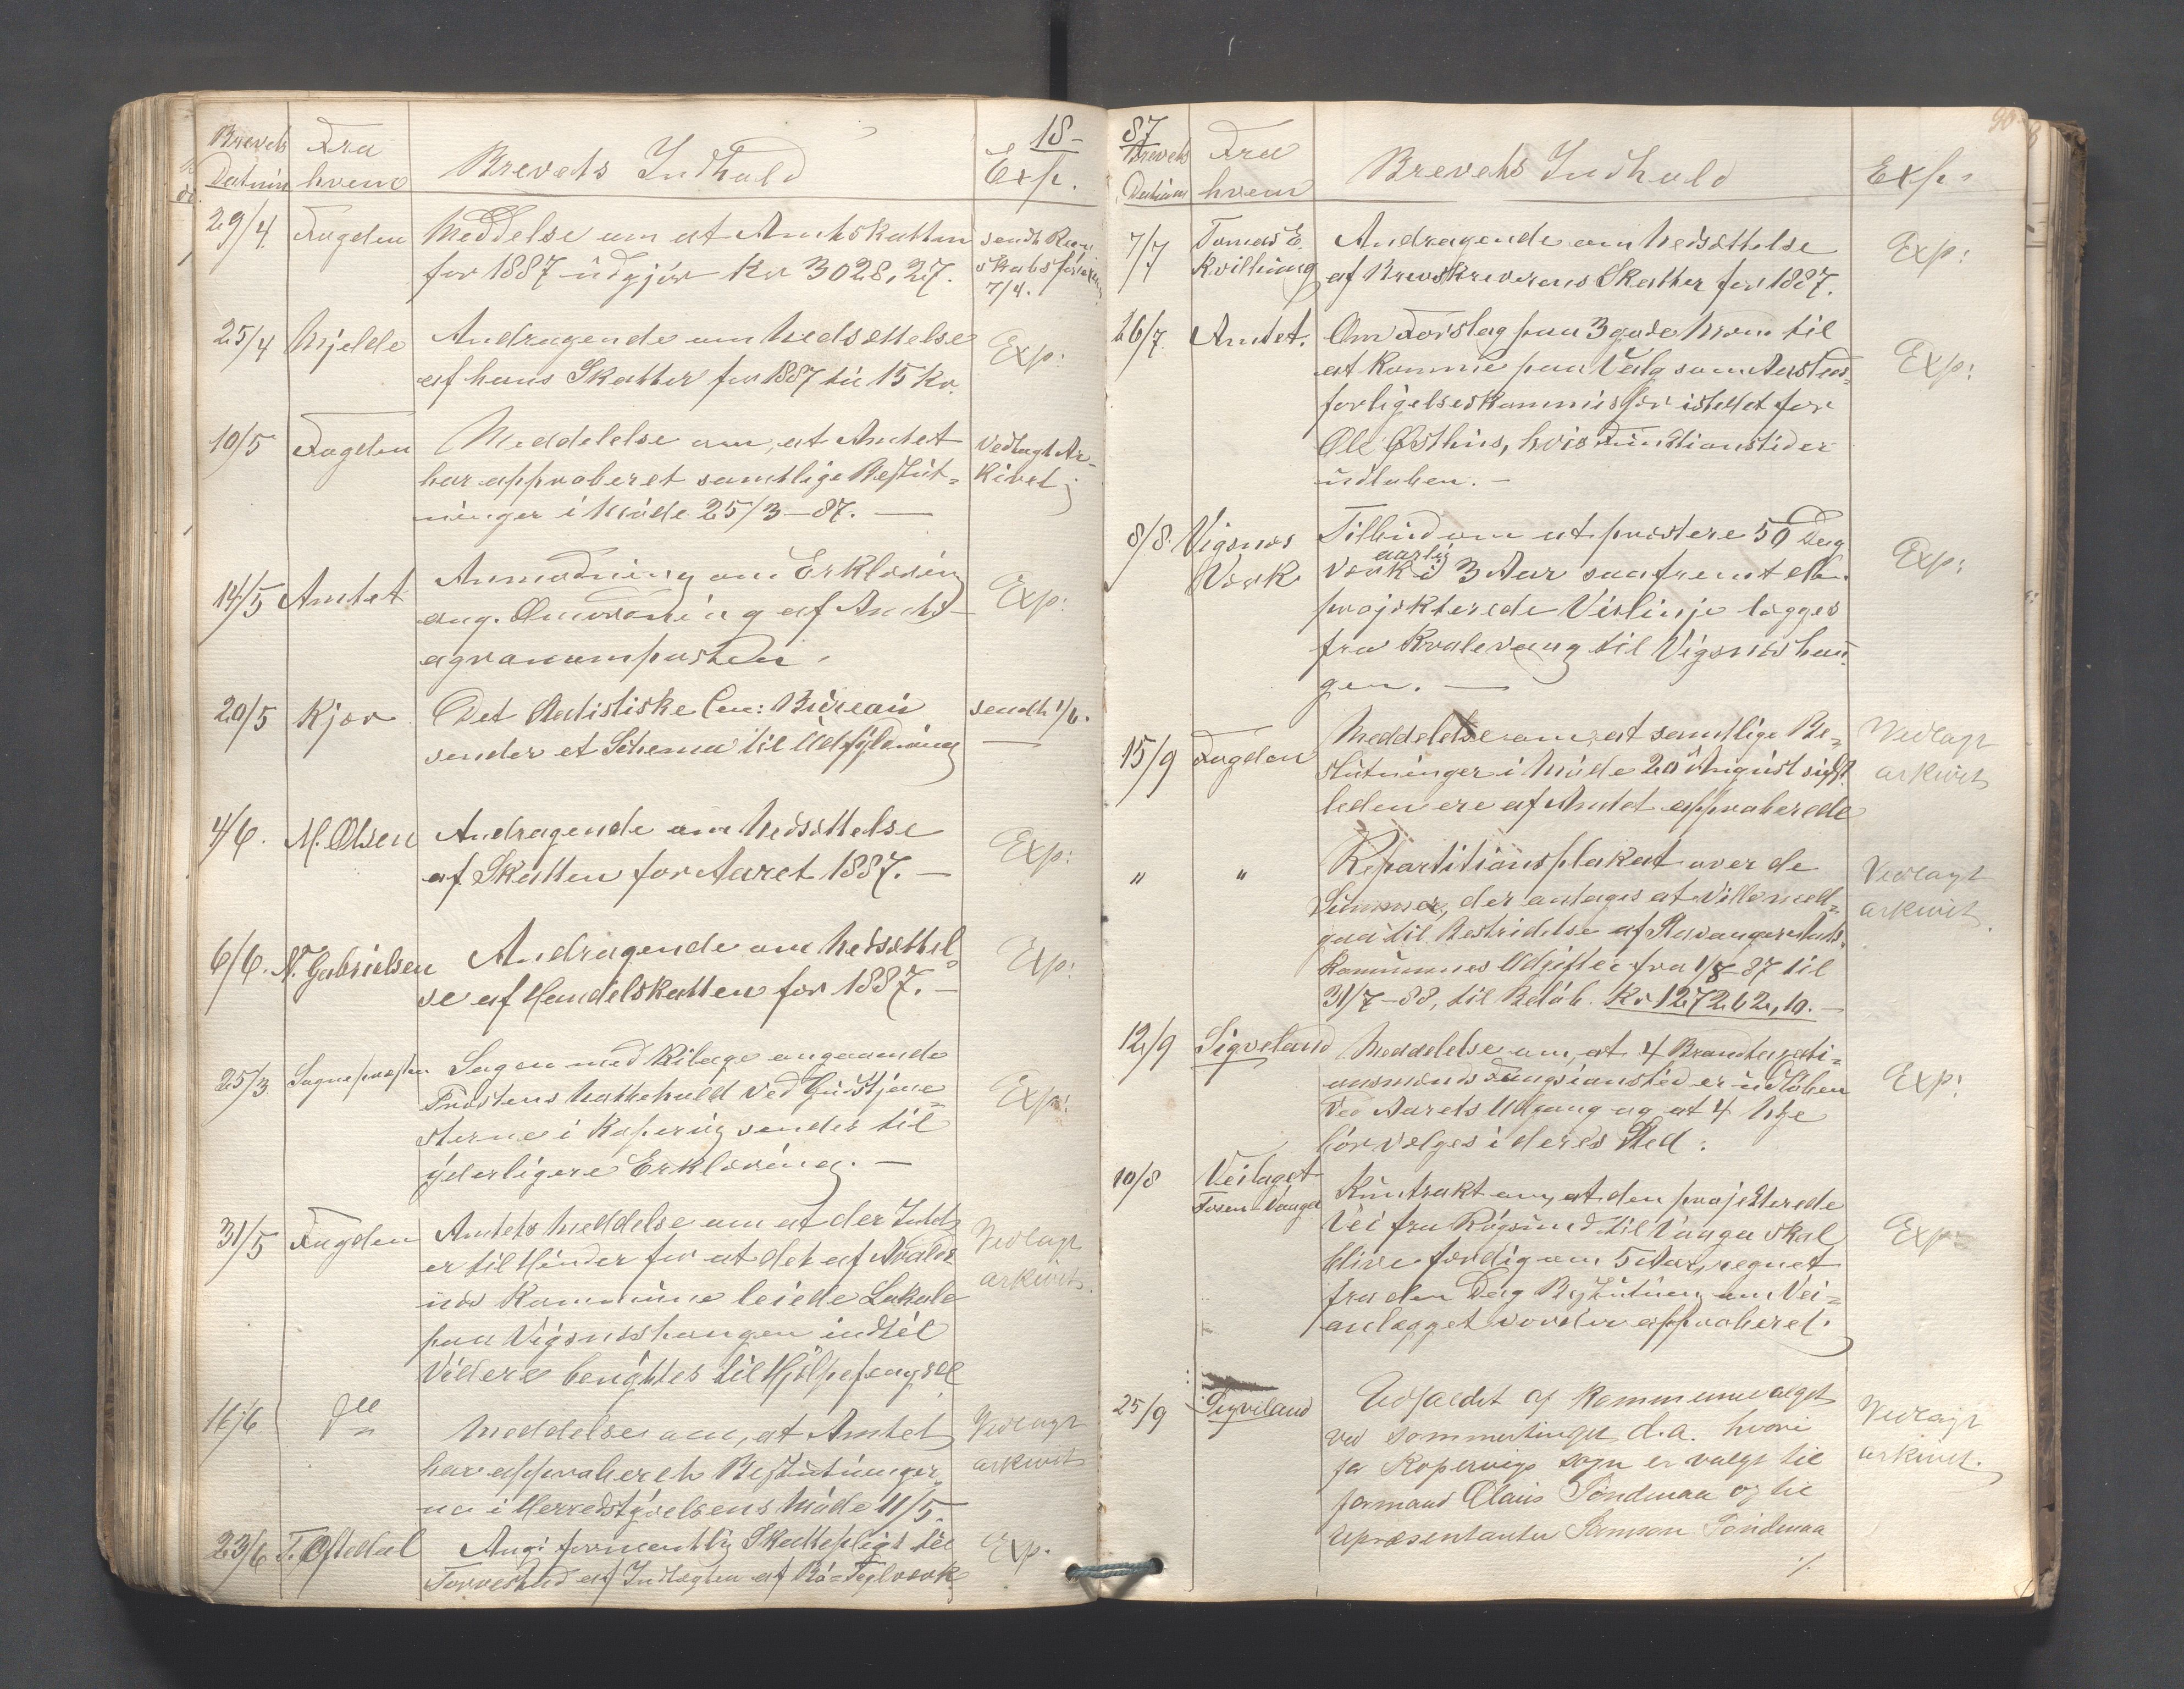 Brevets Fra 18-
Datum hvem Brevets Indhold Exp.
29/4 Fogden Meddelse om at Amtskatten sendt Regn
for 1887 udgjør Kr 3028,27. skabsføreren
7/4.
25/4 Mjelde Andragende om Nedsættelse Exp:
af hans Skatter for 1887 til 15 Kr.
10/5 Fogden Meddelelse om, at Amtet Vedlagt Ar-
har approberet samtlige Beslut= kivet
ninger i Møde 25/3-87. —
14/5 Amtet Anmodning om Erklæring Exp:
ang. Omordning af Amts-
agronomposten.
20/5 Kjær Det statistiske Cen: Bureau sendt 1/6.
sender et Schema til Udfyldning —
4/6. M. Olsen Andragende om Nedsættelse Exp:
af Skatten for Aaret 1887. —
6/6. N. Gabrielsen Andragende om Nedsættel= Exp:
se af Handelskatten for 1887. —
25/3. Sognepræsten Sagen med Bilage angaaende
Præstens Nattehold ved Gudstjene= Exp:
sterne i Kopervig sendes til
yderligere Erklæring. —
31/5 Fogden Amtets Meddelse om at der Intet Vedlagt
er til Hinder for at det af Avalds arkivet.
næs Kommune leiede Lokale
paa Vigsnæshaugen indtil
Videre benyttes til Hjælpefængsel
16/6 Meddelse om, at Amtet Vedlagt
har approberet Beslutninger arkivet
ne i Herredstyrelsens Møde 11/5.
23/6 T. Oftedal Ang: formentlig Skattepligt til Exp.
Torvestad af Indtægten af Bø-Teglværk
87
Brevets Fra Brevets Indhold Exp.
Datum hvem
7/7 Tomas E. Andragende om Nedsættelse Exp:
Kvilhaug af Brevskreverens Skatter for 1887.
16/7. Amtet. Om Forslag paa 3 gode Mænd til
at komme paa Valg som Aasteds= Exp:
forligelseskommissær istedet for
Ole Østhus, hvis Funktionstid er
udløben. —
8/8 Vigsnæs Tilbud om at præstere 50 Dag
Værk værk aarlig i 3 Aar saafremt den Exp:
projekterede Veilinje lægges
fra Kvalevaag til Vigsnæshau
gen. —
15/9 Fogden Meddelelse om, at samtlige Be= Vedlagt
slutninger i Møde 20 August sidst arkivet
leden ere af Amtet approberede
" " Repartitionsplakat over de Vedlagt
Summer, der antages at ville med= arkivet.
gaa til Bestridelse af Stavanger Amts
kommunes Udgifter fra 1/8 87 til
31/7-88, til Beløb. Kr 127262,10. —
12/9 Sigveland Meddelelse om, at 4 Brandtaxati=
onsmænds Fungsionstid er udløben Exp:
ved Aarets Udgang og at 4 Nye
bør vælges i deres Sted.
10/8 Veilaget Kuntrakt om, at den projekterede
Fosen-Vaaga Vei fra Røgsund til Vaaga skal Exp:
blive færdig om 5 Aar, regnet
fra den Dag Beslutning om Vei=
anlægget vorder approberet.
25/9 Sigveland Udfaldet af Kommunevalget Vedlagt
ved Sommertinget d.a. hvori arkivet.
for Kopervigs sogn er valgt til
formand Claus Sundmaa og til
repræsentanter Simon Sundmaa
./.